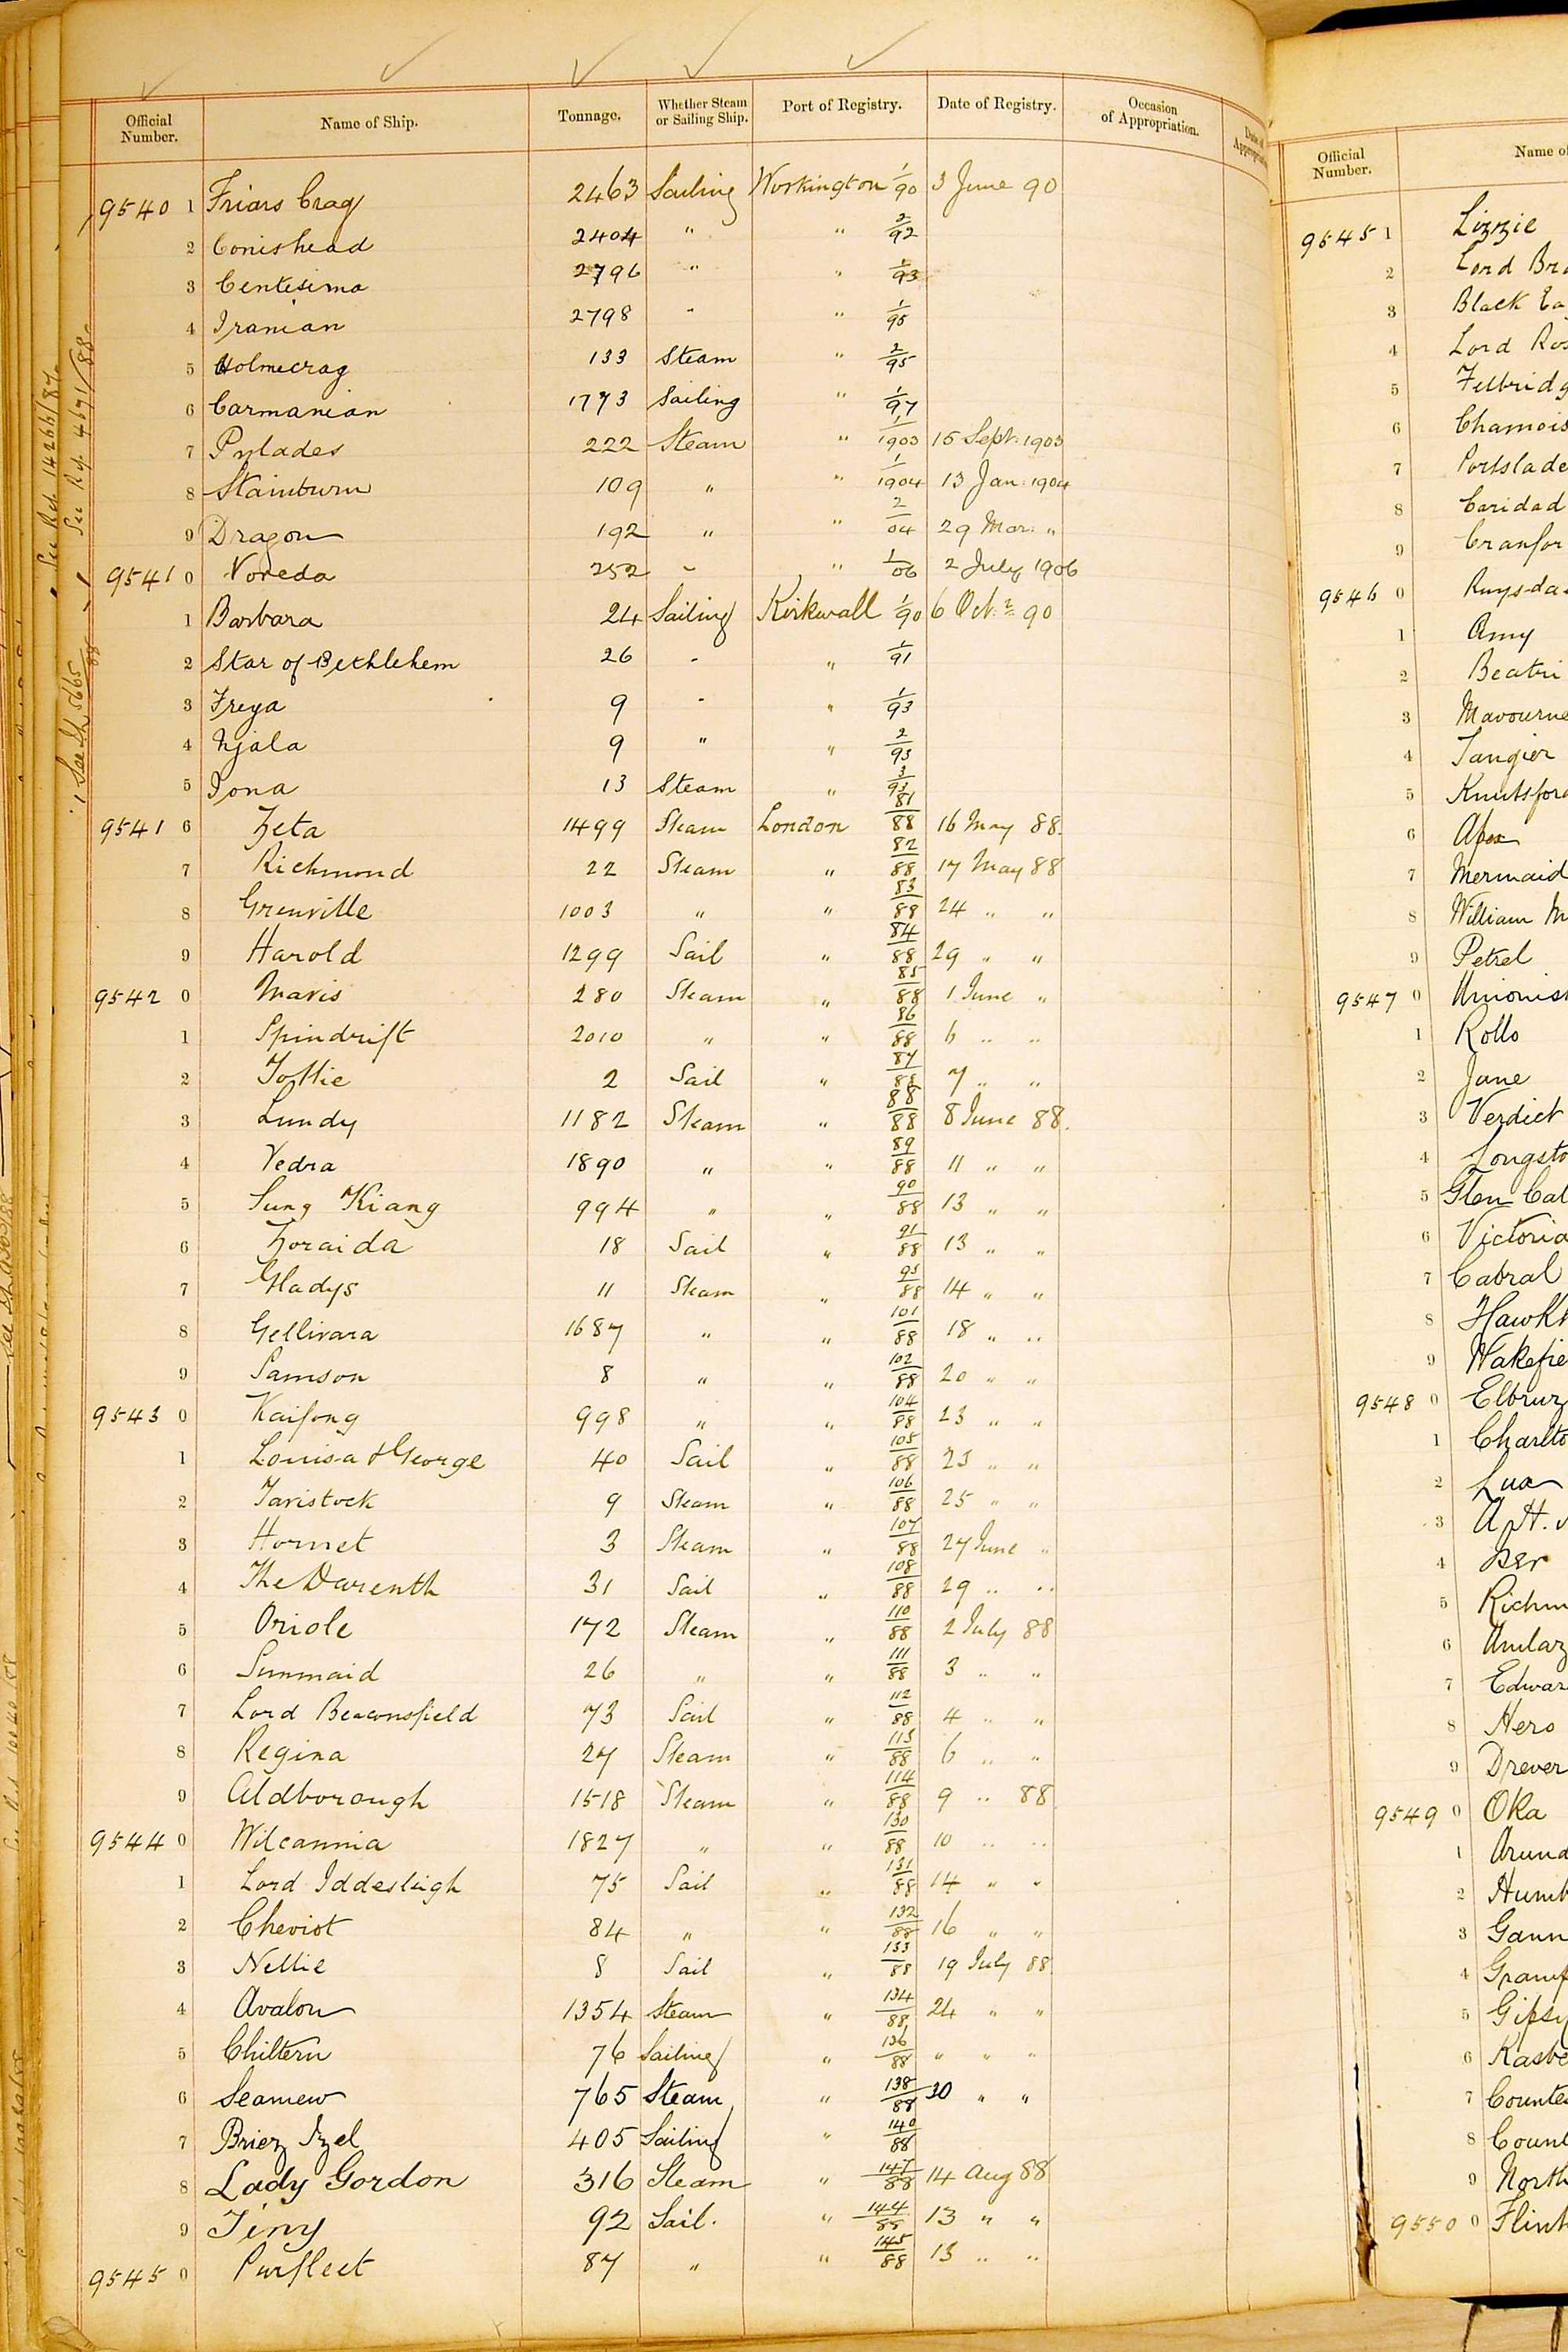 Official Number. Name of Ship. Tonnage. Whether Steam or Sailing Ship. Port of Registry. Date of Registry. Occasion of Appropriation. Date of
9540 1 Friars Crag 2463 Sailing Workington 1/90 3 June 90
2 Conishead 2404 " " 2/92
3 Centesima 2796 " " 1/93
4 Iranian 2798 " " 1/95
5 Holmecrag 133 Steam " 2/95
6 Carmanian 1773 Sailing " 1/97
7 Pylades 222 Steam " 1/1903 15 Sept. 1903
8 Stainburn 109 " " 1/1904 13 Jan: 1904
9 Dragon 192 " " 2/04 29 Mar: "
9541 0 Voreda 252 " " 1/06 2 July 1906
1 Barbara 24 Sailing Kirkwall 1/90 6 Oct. 90
2 Star of Bethlehem 26 " " 1/91
3 Freya 9 " " 1/93
4 Njala 9 " " 2/93
5 Iona 13 Steam " 3/93
9541 6 Zeta 1499 Steam London 81/88 16 May 88.
7 Richmond 22 Steam " 82/88 17 May 88
8 Grenville 1003 " " 83/88 24 " "
9 Harold 1299 Sail " 84/88 29 " "
9542 0 Mavis 280 Steam " 85/88 1 June "
1 Spindrift 2010 " " 86/88 6 " "
2 Tottie 2 Sail " 87/88 7 " "
3 Lundy 1182 Steam " 88/88 8 June 88.
4 Vedra 1890 " " 89/88 11 " "
5 Sung Kiang 994 " " 90/88 13 " "
6 Zoraida 18 Sail " 91/88 13 " "
7 Gladys 11 Steam " 95/88 14 " "
8 Gellivara 1687 " " 101/88 18 " "
9 Samson 8 " " 102/88 20 " "
9543 0 Kaifong 998 " " 104/88 23 " "
1 Louisa & George 40 Sail " 105/88 23 " "
2 Tavistock 9 Steam " 106/88 25 " "
3 Hornet 3 Steam " 107/88 27 June "
4 The Darenth 31 Sail " 108/88 29 " "
5 Oriole 172 Steam " 110/88 2 July 88
6 Sunmaid 26 " " 111/88 3 " "
7 Lord Beaconsfield 73 Sail " 112/88 4 " "
8 Regina 27 Steam " 113/88 6 " "
9 Aldborough 1518 Steam " 114/88 9 " 88
9544 0 Wilcannia 1827 " " 130/88 10 " "
1 Lord Iddesleigh 75 Sail " 131/88 14 " "
2 Cheviot 84 " " 132/88 16 " "
3 Nellie 8 Sail " 133/88 19 July 88
4 Avalon 1354 Steam " 134/88 24 " "
5 Chiltern 76 Sailing " 136/88 " " "
6 Seamew 765 Steam " 138/88 30 " "
7 Briez Izel 405 Sailing " 140/88
8 Lady Gordon 316 Steam " 147/88 14 Aug 88
9 Tiny 92 Sail. " 144/88 13 " "
9545 0 Purfleet 87 " " 145/88 13 " "
See Rep. 14266/87
See Rep. 4671/88
Official Number. Name of
9545 1 Lizzie
2 Lord
3 Black
4 Lord
5
6 Chamois
7 Portslade
8 Caridad
9
9546 0
1 Amy
2
3
4 Tangier
5 Knutsford
6 Apex
7 Mermaid
8 William
9 Petrel
9547 0 Unionist
1 Rollo
2 Jane
3 Verdict
4
5 Glen
6 Victoria
7 Cabral
8
9
9548 0
1
2 Lua
3 A. H.
4
5
6
7
8 Hero
9
9549 0 Oka
1
2
3
4
5
6
7
8
9
9550 0